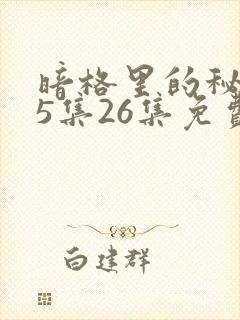 暗格里的秘
5集26集免费
白建群